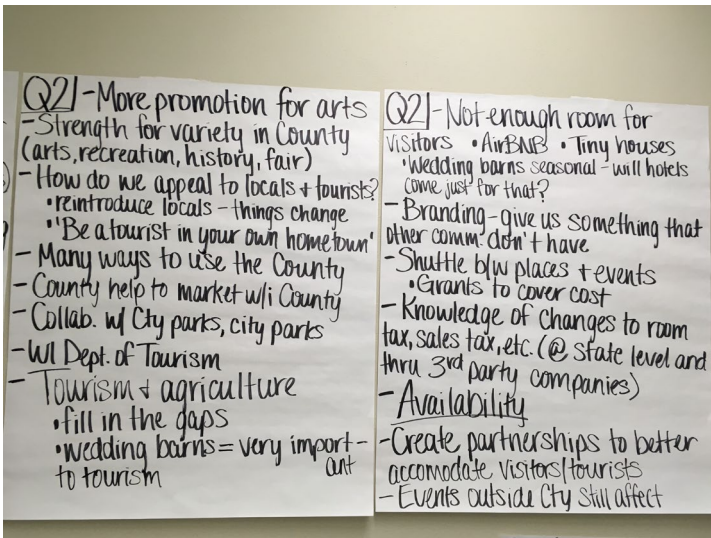 Q2 - More promotion for arts
- Strength for variety in County
(arts, recreation, history, fair)
- How do we appeal to locals + tourists?
• reintroduce locals - things change
• "Be a tourist in your own hometown'
- Many ways to use the County
- County help to market w/i County
- Collab. w/ Cty parks, city parks
- WI Dept. of Tourism
- Tourism + agriculture
• fill in the gaps
• wedding barns = very import-
ant
to tourism
Q2 - Not enough room for
visitors • AirBNB • Tiny houses
• Wedding barns seasonal - will hotels
come just for that?
- Branding - give us something that
other comm. don't have
- Shuttle b/w places + events
• Grants to cover cost
- Knowledge of changes to room
tax, sales tax, etc. (@ State level and
thru 3rd party companies)
- Availability
- Create partnerships to better
accomodate visitors/tourists
- Events outside Cty still affect